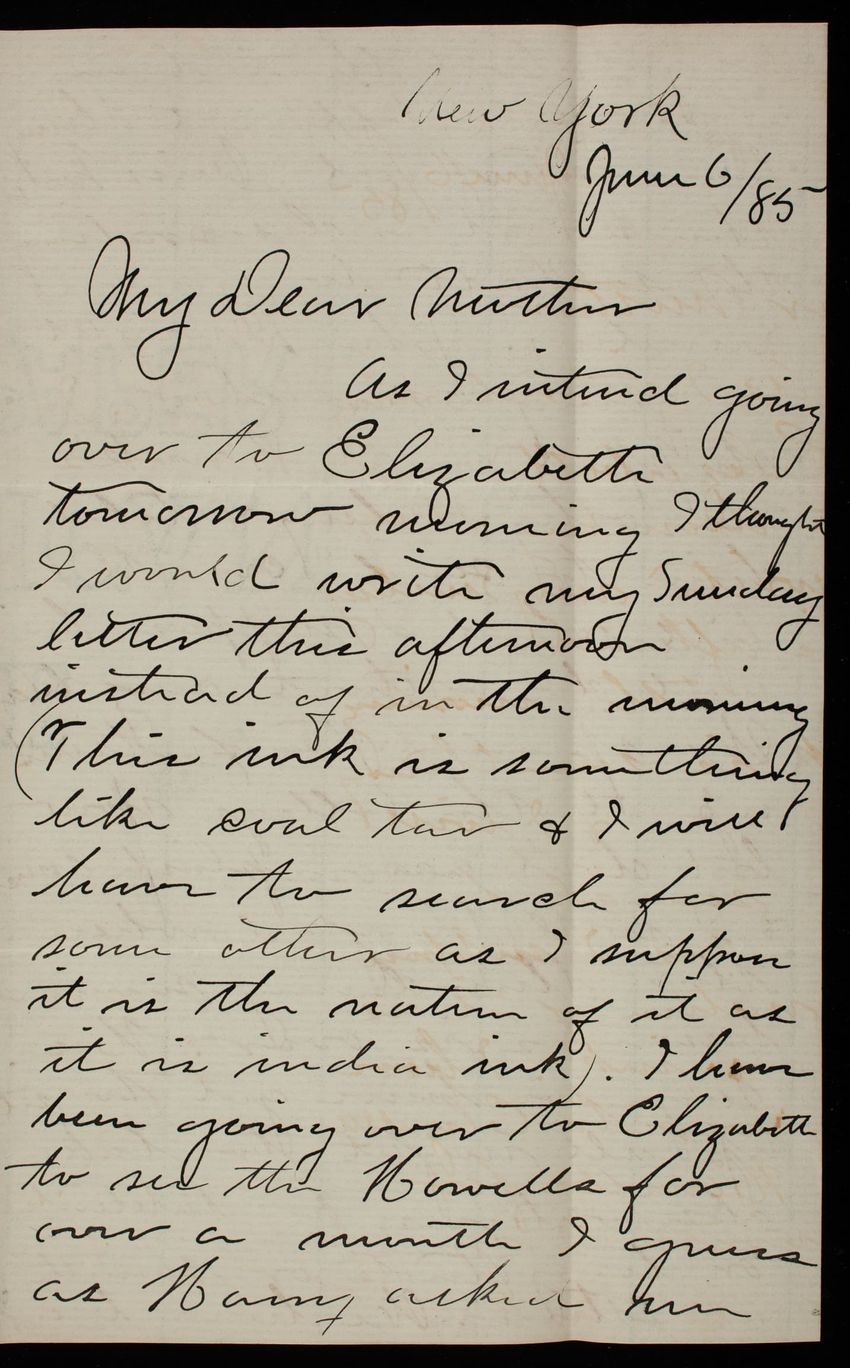 New York
June 6/85
My Dear Mother
As I intend going
over to Elizabeth
tomorrow morning I thought
I would write my Sunday
letter this afternoon
instead of in the morning
(This ink is something
like coal tar & I will
have to search for
some other as I suppose
it is the nature of it as
it is india ink). I have
been going over to Elizabeth
to see the Howells for
over a month I guess
as Harry asked me